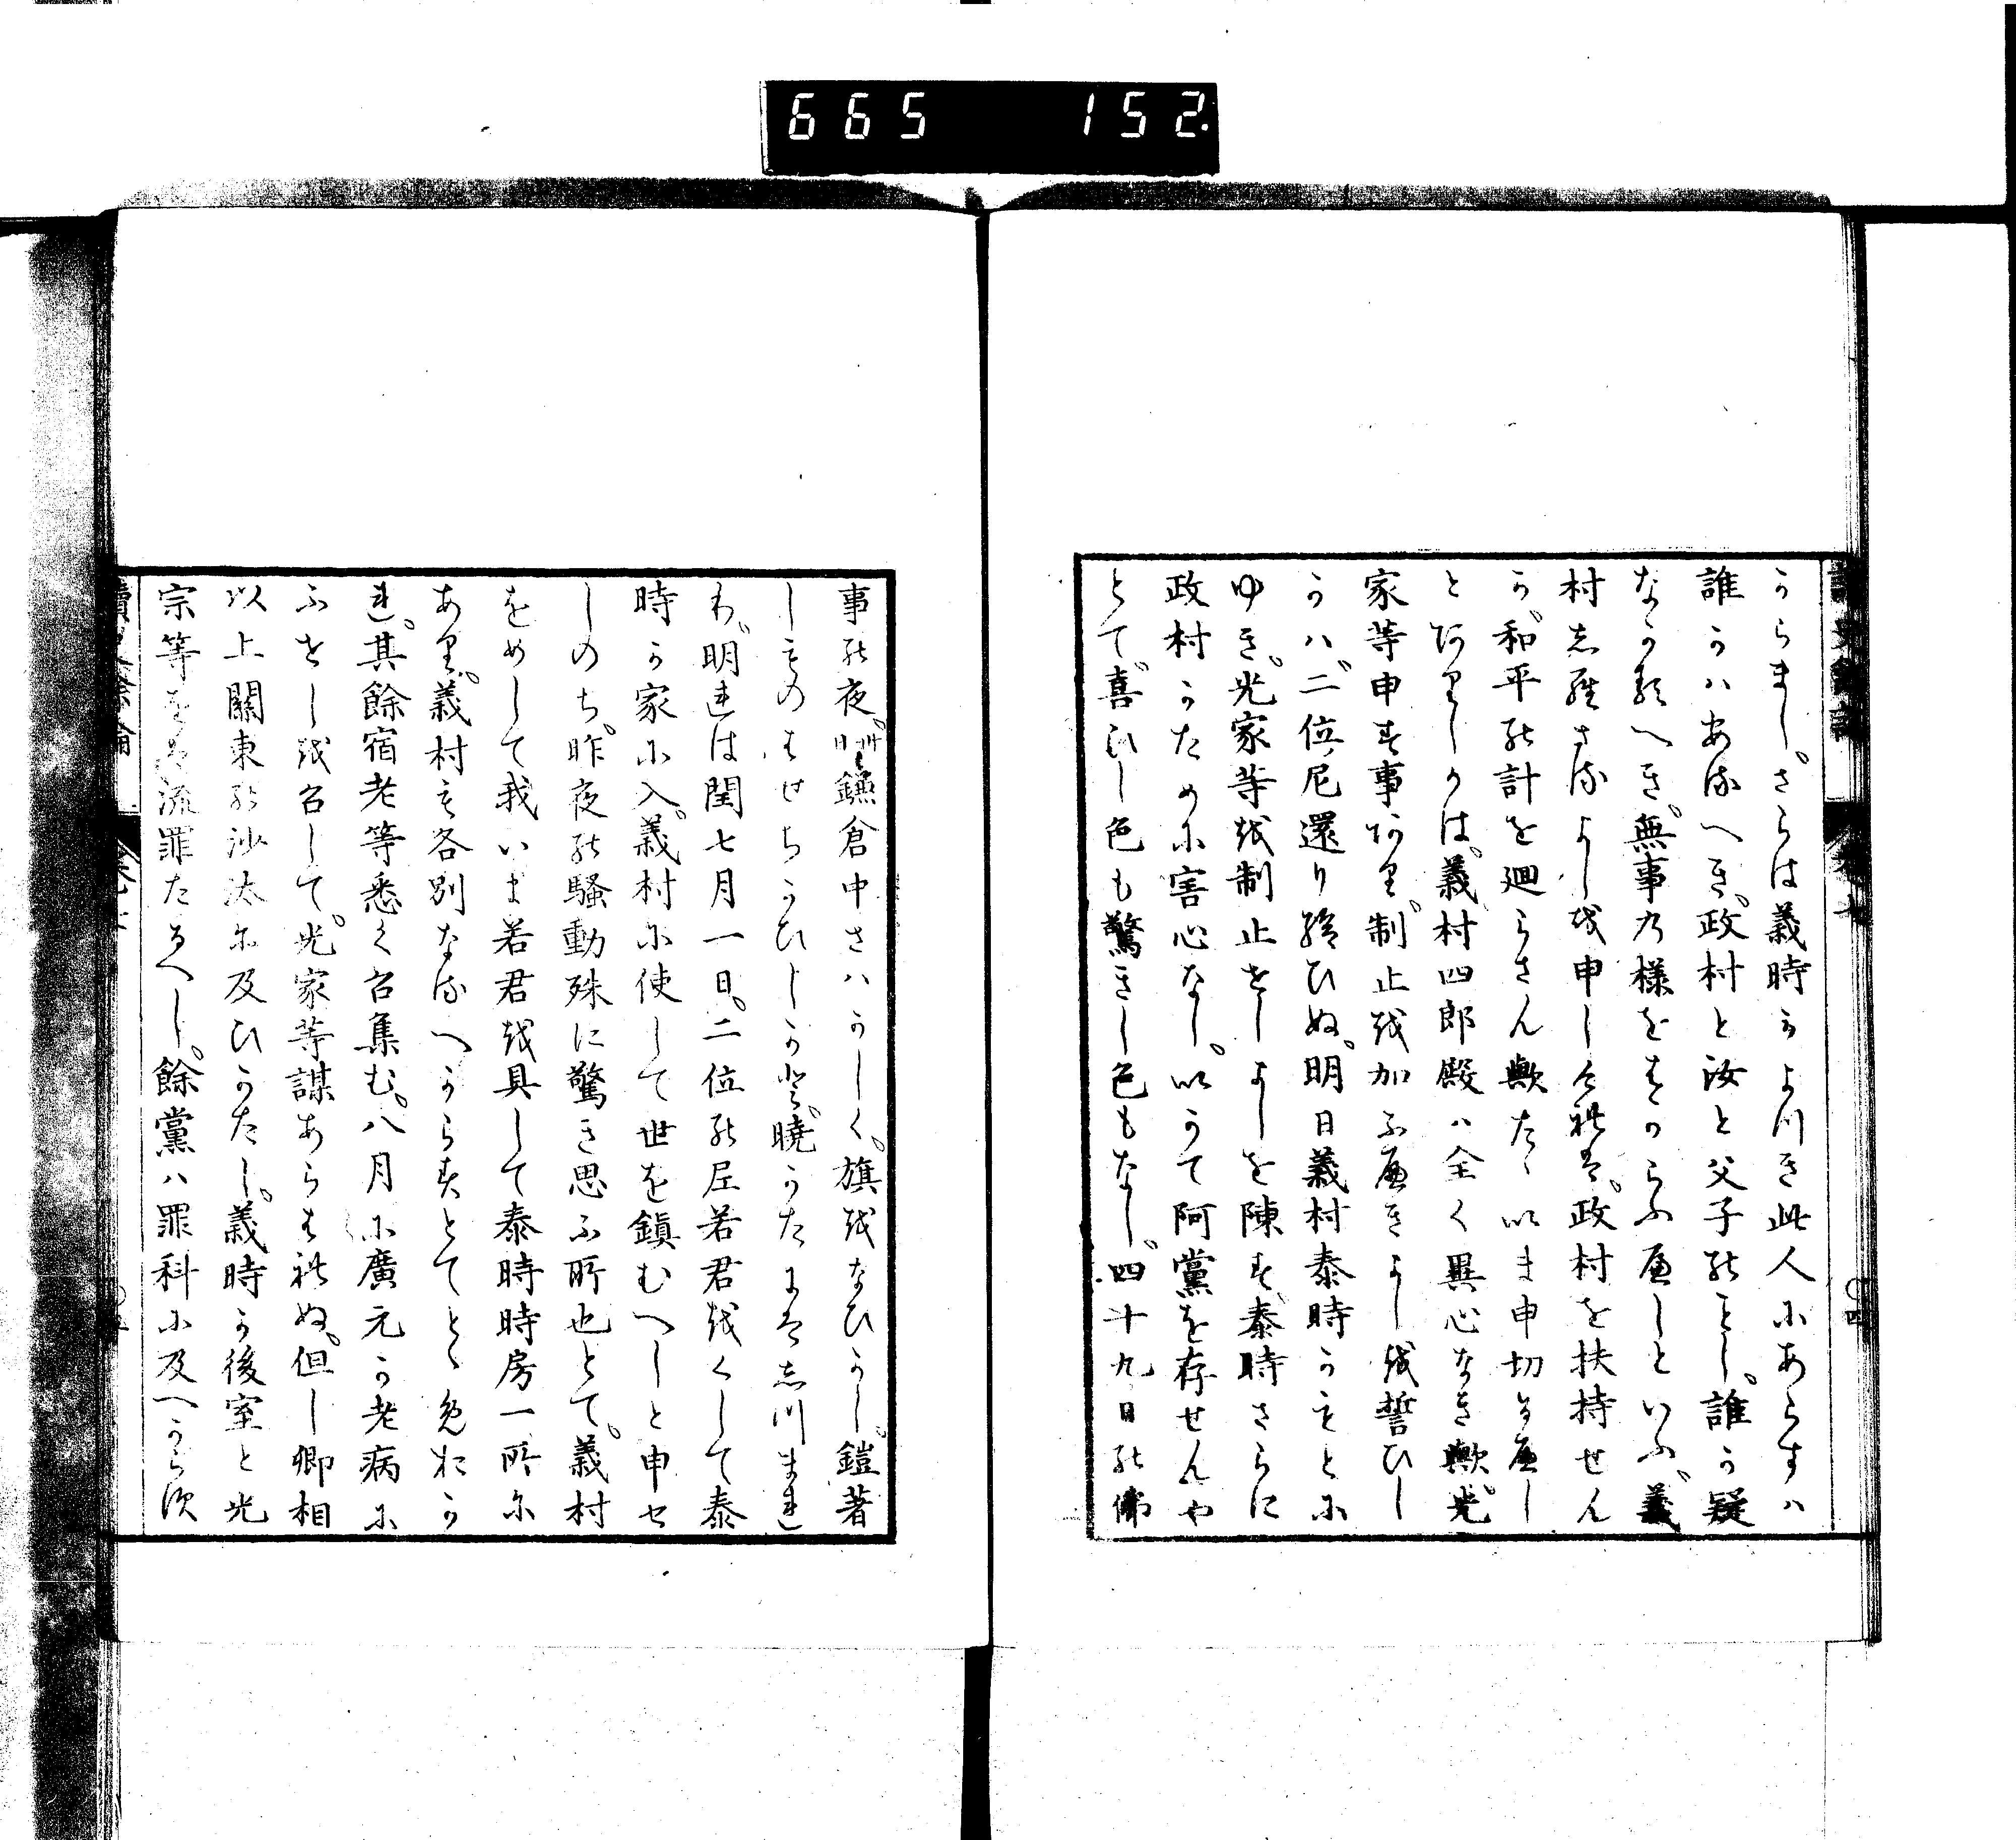 665 152.
からまし。さらは義時かよつき此人にあらすハ
誰かハあるへき。政村と汝と父子のことし。誰か疑
なかるへき。無事の様をはからふへしといふ。義
村しらさるよしを申しけれは。政村を扶持せん
か。和平の計を廻らさん歟たゝいま申切るへし
とありしかは。義村四郎殿ハ全く異心なき歟。光
家等申す事あり。制止を加ふへきよしを誓ひし
かハ。二位ノ尼還り給ひぬ。明日義村泰時かもとに
ゆき。光家等を制止せしよしを陳す。泰時さらに
政村かために害心なし。いかて阿黨を存せんや
とて。喜ひし色も驚きし色もなし。四十九日の佛
事の夜。鎌倉中さハかしく。旗をなひかし。鎧著
しものはせちかひしかと。曉かたにはしつまれ
り。明れは閏七月一日。二位の尼若君をくして泰
時か家に入。義村に使して世を鎭むへしと申せ
しのち。昨夜の騷動殊に驚き思ふ所也とて。義村
をめして我いま若君を具して泰時時房一所に
あり。義村も各別なるへからすとてとゝめおか
れ。其餘宿老等悉く召集む。八月に廣元か老病に
ふせしを召して。光家等謀あらはれぬ。但し卿相
以上關東の沙汰に及ひかたし。義時か後室と光
宗等をは流罪たるへし。餘黨ハ罪科に及へからす